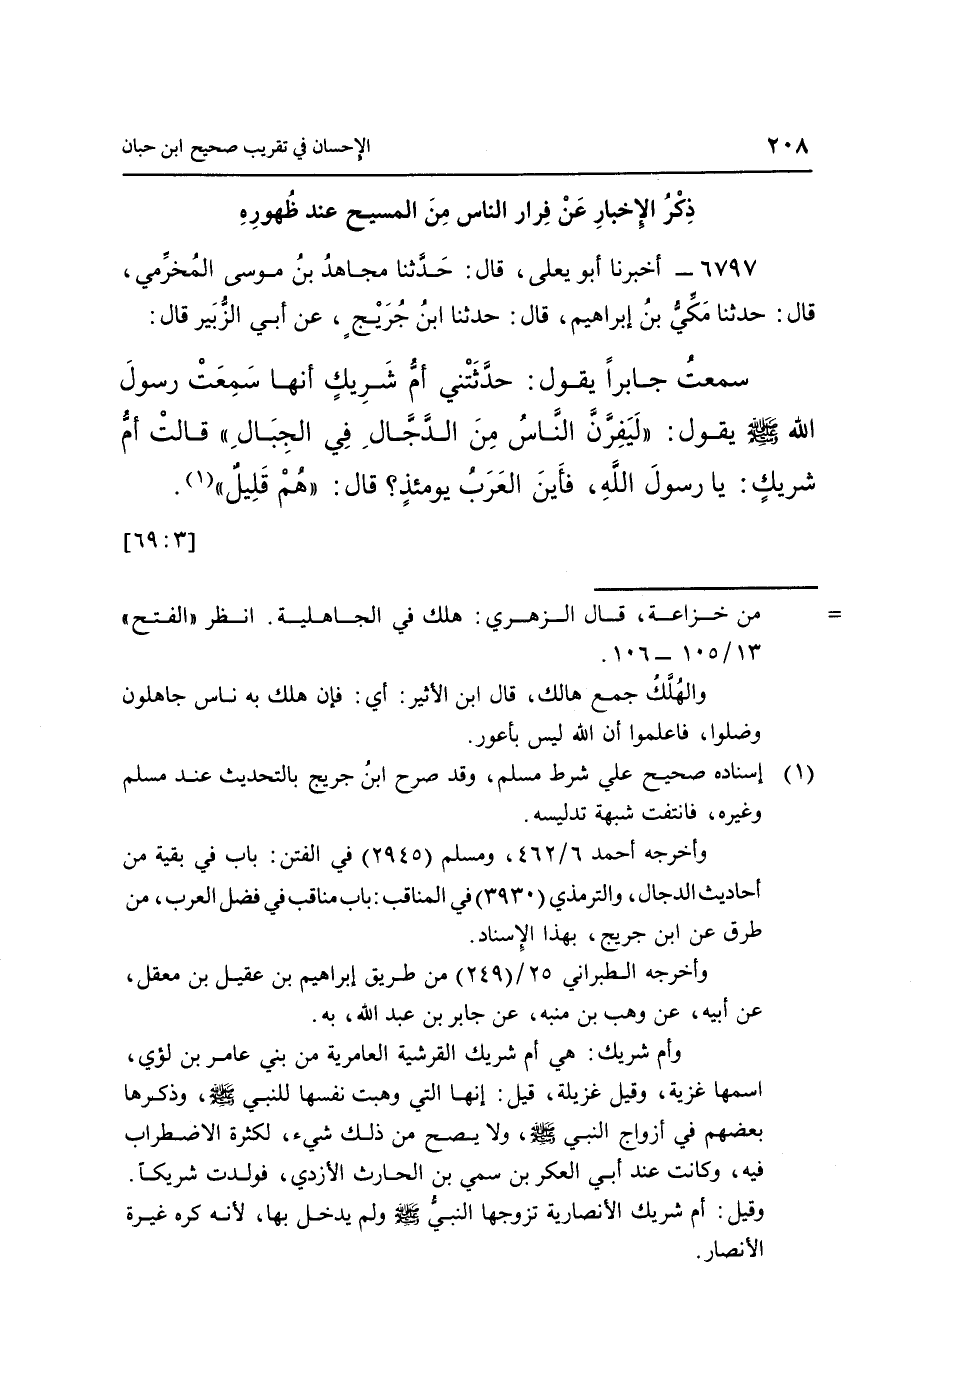 ٢٠٨ الإحسان في تقريب صحيح ابن حبان
ذِكْرُ الإِخبارِ عَنْ فِرار الناس مِنَ المسيح عند ظُهورِهِ
٦٧٩٧ ــ أخبرنا أبو يعلى، قال: حَدَّثنا مجاهدُ بنُ موسى المُخرِّمي،
قال: حدثنا مَكِّيُّ بنُ إبراهيم، قال: حدثنا ابنُ جُرَيْجٍ، عن أبي الزُّبَير قال:
سمعتُ جابراً يقول: حدَّثَتْني أمُّ شَرِيكٍ أنها سَمِعَتْ رسولَ
الله ﷺ يقول: «لَيَفِرَّنَّ النَّاسُ مِنَ الدَّجَّالِ فِي الجِبَالِ» قالتْ أمُّ
شريكٍ: يا رسولَ اللَّهِ، فأَينَ العَرَبُ يومئذٍ؟ قال: «هُمْ قَلِيلٌ»(١).
[٣: ٦٩]
= من خزاعة، قال الزهري: هلك في الجاهلية. انظر «الفتح»
١٣/ ١٠٥ ــ ١٠٦.
والهُلَّكُ جمع هالك، قال ابن الأثير: أي: فإن هلك به ناس جاهلون
وضلوا، فاعلموا أن الله ليس بأعور.
(١) إسناده صحيح علي شرط مسلم، وقد صرح ابنُ جريج بالتحديث عند مسلم
وغيره، فانتفت شبهة تدليسه.
وأخرجه أحمد ٤٦٢/٦، ومسلم (٢٩٤٥) في الفتن: باب في بقية من
أحاديث الدجال، والترمذي (٣٩٣٠) في المناقب: باب مناقب في فضل العرب، من
طرق عن ابن جريج، بهذا الإسناد.
وأخرجه الطبراني ٢٥/(٢٤٩) من طريق إبراهيم بن عقيل بن معقل،
عن أبيه، عن وهب بن منبه، عن جابر بن عبد الله، به.
وأم شريك: هي أم شريك القرشية العامرية من بني عامر بن لؤي،
اسمها غزية، وقيل غزيلة، قيل: إنها التي وهبت نفسها للنبي ﷺ، وذكرها
بعضهم في أزواج النبي ﷺ، ولا يصح من ذلك شيء، لكثرة الاضطراب
فيه، وكانت عند أبي العكر بن سمي بن الحارث الأزدي، فولدت شريكاً.
وقيل: أم شريك الأنصارية تزوجها النبيُّ ﷺ ولم يدخل بها، لأنه كره غيرة
الأنصار.